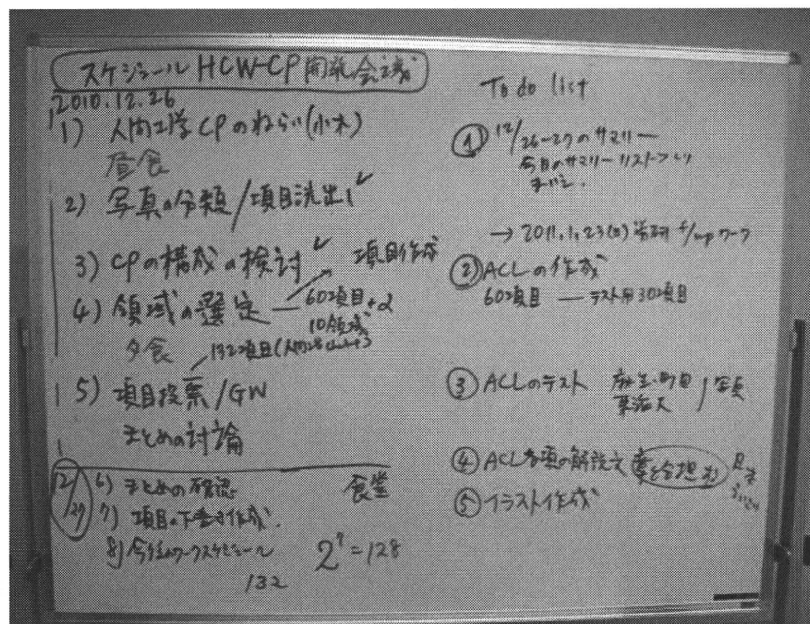 スケジュール HCW-CP 開発会議
2010.12.26
1) 人間工学CPのねらい(小木)
昼食
2) 写真の分類/項目洗出し✓
3) CPの構成の検討✓ 項目作成
4) 領域の選定 — 60項目+α
10領域
夕食 132項目
5) 項目提案/GW
まとめの討論
12/27
6) まとめの確認 食堂
7) 項目の下書き作成
8) 今後のワークスケジュール
132 2⁷=128
To do list
① 12/26-27のサマリー
今日のサマリー
→ 2011.1.23(日)
② ACLの作成
60項目 — テスト用30項目
③ ACLのテスト
④ ACL各項の解説文
⑤ イラスト作成